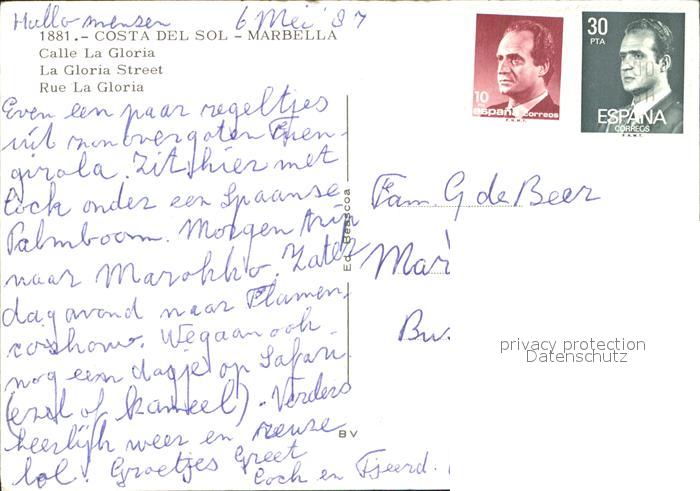 Hullo mensen 6 Mei '87
1881.- COSTA DEL SOL - MARBELLA
Calle La Gloria
La Gloria Street
Rue La Gloria
Even een paar regeltjes
uit zonovergoten Fuen-
girola. Zit hier met
Cock onder een Spaanse
Palmboom. Morgen
naar Marokko. Zater
dagavond naar Flamen-
coshow. We gaan ook
nog een dagje op Safari
(ezel of kameel). Verders
heerlijk weer en reuze
lol. Groetjes Greet
Cock en Tjeerd.
Ed. Beascoa
BV
10
españa correos
F.N.M.T.
30
PTA
ESPAÑA
CORREOS
F.N.M.T.
Fam. G de Beer
Mar
Bu.
privacy protection
Datenschutz